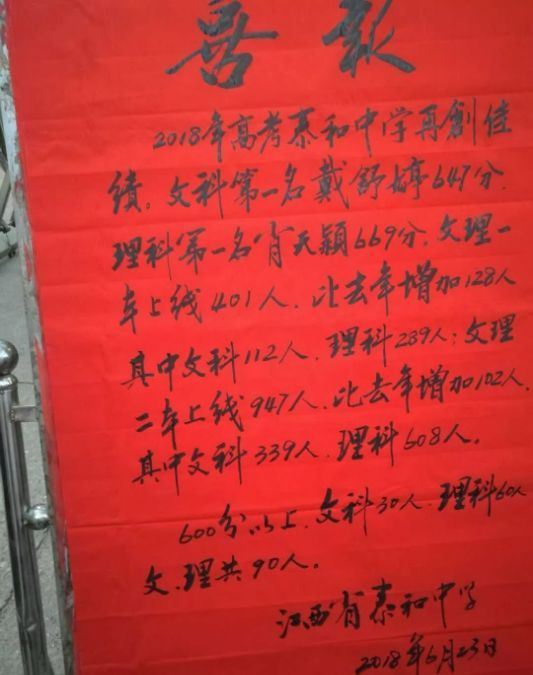 喜报
2018年高考泰和中学再創佳
績。文科第一名戴舒婷647分.
理科第一名肖天颖669分.文理一
本上线401人.比去年增加128人
其中文科112人.理科289人;文理
二本上线947人.比去年增加102人.
其中文科339人.理科608人。
600分以上.文科30人.理科60人
文.理共90人。
江西省泰和中学
2018年6月23日